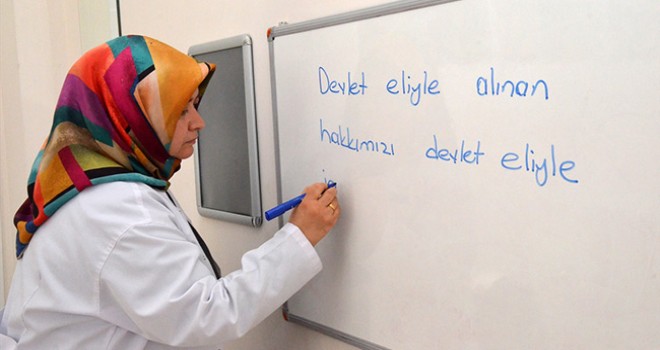 Devlet eliyle alınan
hakkımızı devlet eliyle
is